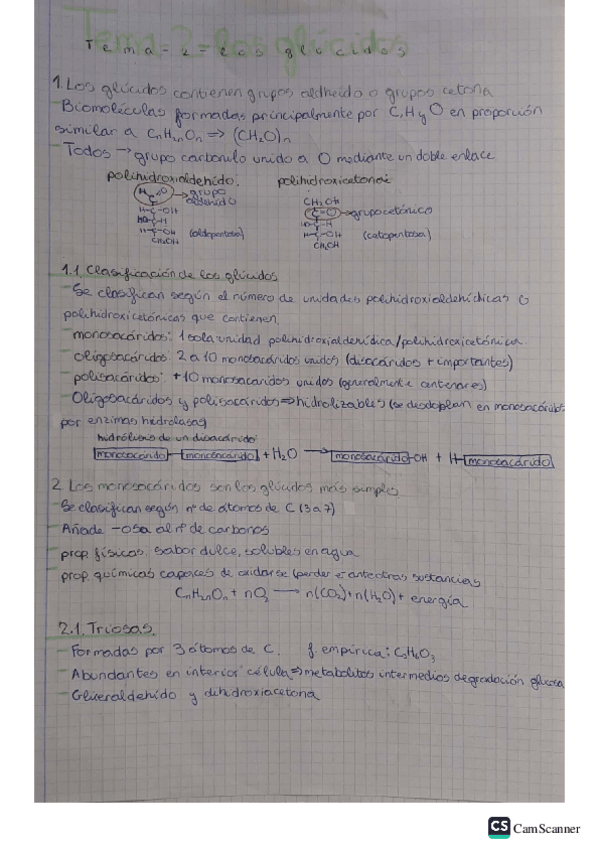 Tema-2-Los glúcidos
1. Los glúcidos contienen grupos aldheído o grupos cetona
- Biomoléculas formadas principalmente por C, H y O en proporción
similar a CnH2nOn ⇒ (CH2O)n
- Todos → grupo carbonilo unido a O mediante un doble enlace
polihidroxialdehído: polihidroxicetona:
H-C=O → grupo aldehído
H-C-OH
HO-C-H
H-C-OH (aldopentosa)
CH2OH
CH2OH
C=O → grupo cetónico
HO-C-H
H-C-OH (cetopentosa)
CH2OH
1.1. Clasificación de los glúcidos
- Se clasifican según el número de unidades polihidroxialdehídicas o
polihidroxicetónicas que contienen.
- monosacáridos: 1 sola unidad polihidroxialdehídica/polihidroxicetónica.
- Oligosacáridos: 2 a 10 monosacáridos unidos (disacáridos + importantes)
- polisacáridos: +10 monosacáridos unidos (generalmente centenares)
- Oligosacáridos y polisacáridos ⇒ hidrolizables (se desdoblan en monosacáridos
por enzimas hidrolasas)
hidrólisis de un disacárido:
monosacárido - monosacárido + H2O → monosacárido-OH + H-monosacárido
2. Los monosacáridos son los glúcidos más simples
- Se clasifican según nº de átomos de C (3 a 7)
- Añade -osa al nº de carbonos
- prop. físicas: sabor dulce, solubles en agua
- prop. químicas capaces de oxidarse (perder e- ante otras sustancias
CnH2nOn + nO2 → n(CO2)+n(H2O)+ energía
2.1. Triosas.
- Formadas por 3 átomos de C. f. empírica: C3H6O3
- Abundantes en interior célula ⇒ metabolitos intermedios degradación glucosa
- Gliceraldehído y dihidroxiacetona
CS CamScanner